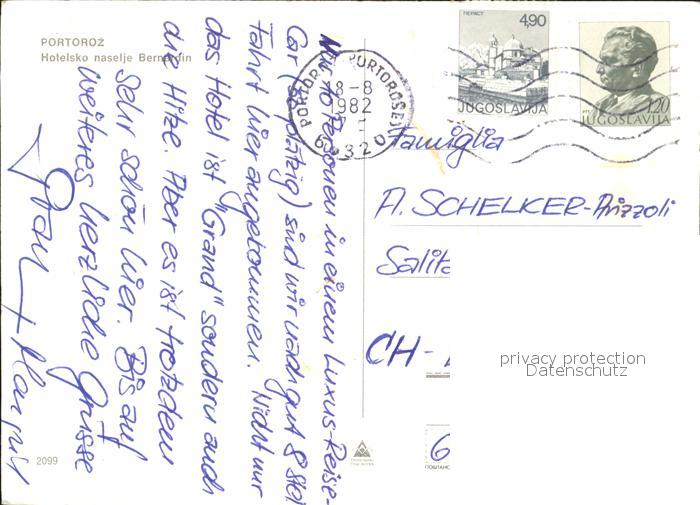 PORTOROŽ
Hotelsko naselje Bernardin
Mit 10 Personen in einem Luxus-Reise-
Car (50 plätzig) sind wir nach gut 8 std
Fahrt hier angekommen. Nicht nur
das Hotel ist "Grand" sondern auch
die Hitze. Aber es ist trotzdem
sehr schön hier. Bis auf
weiteres herzliche Grüsse
+ Margrit
2099
PORTOROŽ PORTOROSE
8-8
1982
6320
ПЕРАСТ
4,90
JUGOSLAVIJA
1.20
JUGOSLAVIJA
Famiglia
A. SCHELKER-Arizzoli
Salit
CH-
6
privacy protection
Datenschutz